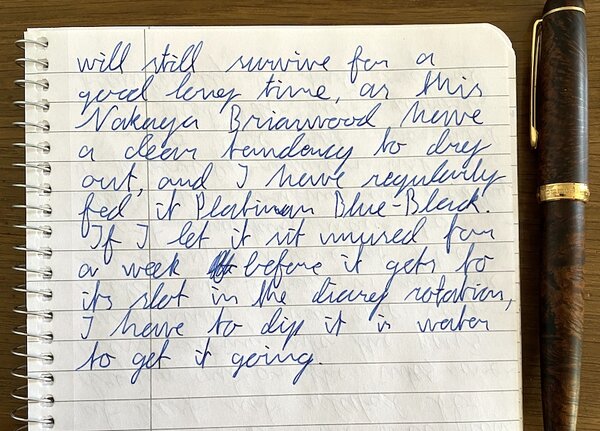 will still survive for a
good long time, as this
Nakaya Briarwood have
a clear tendancy to dry
out, and I have regularly
fed it Platinum Blue-Black.
If I let it sit unused for
a week before it gets to
its slot in the diary rotation,
I have to dip it in water
to get it going.